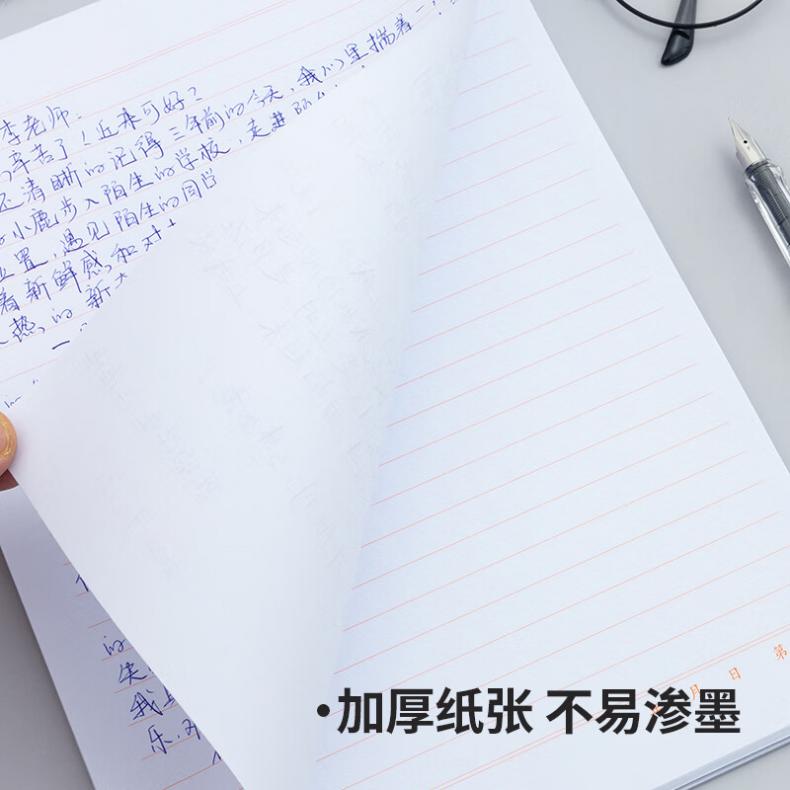 李老师:
辛苦了!近来可好?
还清晰的记得三年前的今天,我们里揣着一
小鹿步入陌生的学校,走进
位置,遇见陌生的同学
着新鲜感,和对
热,的新
一
的
失
我
乐,对
月 日 第
•加厚纸张 不易渗墨